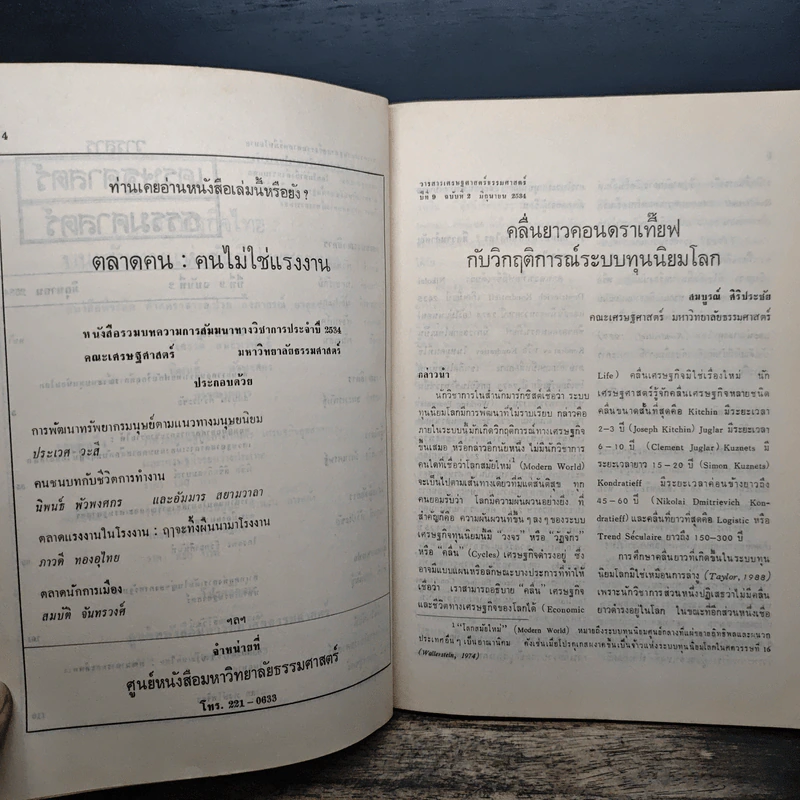 4
ท่านเคยอ่านหนังสือเล่มนี้หรือยัง?
ตลาดคน : คนไม่ใช่แรงงาน
หนังสือรวมบทความการสัมมนาทางวิชาการประจำปี 2534
คณะเศรษฐศาสตร์ มหาวิทยาลัยธรรมศาสตร์
ประกอบด้วย
การพัฒนาทรัพยากรมนุษย์ตามแนวทางมนุษยนิยม
ประเวศ วะสี
คนชนบทกับชีวิตการทำงาน
นิพนธ์ พัวพงศกร และอัมมาร สยามวาลา
ตลาดแรงงานในโรงงาน : ฤๅจะทิ้งผืนนามาโรงงาน
ภาวดี ทองอุไทย
ตลาดนักการเมือง
สมบัติ จันทรวงศ์
ฯลฯ
จำหน่ายที่
ศูนย์หนังสือมหาวิทยาลัยธรรมศาสตร์
โทร. 221-0633
วารสารเศรษฐศาสตร์ธรรมศาสตร์
ปีที่ 9 ฉบับที่ 2 มิถุนายน 2534
คลื่นยาวคอนดราเที๊ยฟ
กับวิกฤติการณ์ระบบทุนนิยมโลก
สมบูรณ์ ศิริประชัย
คณะเศรษฐศาสตร์ มหาวิทยาลัยธรรมศาสตร์
กล่าวนำ
นักวิชาการในสำนักมาร์กซิสต์เชื่อว่า ระบบ
ทุนนิยมโลกมีการพัฒนาที่ไม่ราบเรียบ กล่าวคือ
ภายในระบบนี้มักเกิดวิกฤติการณ์ทางเศรษฐกิจ
ขึ้นเสมอ หรือกล่าวอีกนัยหนึ่ง ไม่มีนักวิชาการ
คนใดที่เชื่อว่าโลกสมัยใหม่¹ (Modern World)
จะเป็นไปตามเส้นทางเดียวที่มีแต่สันติสุข ทุก
คนยอมรับว่า โลกมีความผันผวนอย่างยิ่ง ที่
สำคัญก็คือ ความผันผวนที่ขึ้นๆลงๆของระบบ
เศรษฐกิจทุนนิยมนี้มี "วงจร" หรือ "วัฏจักร"
หรือ "คลื่น" (Cycles) เศรษฐกิจดำรงอยู่ ซึ่ง
อาจมีแบบแผนหรือลักษณะบางประการที่ทำให้
เชื่อว่า เราสามารถอธิบาย "คลื่น" เศรษฐกิจ
และชีวิตทางเศรษฐกิจของโลกได้ (Economic
Life) คลื่นเศรษฐกิจมิใช่เรื่องใหม่ นัก
เศรษฐศาสตร์รู้จักคลื่นเศรษฐกิจหลายชนิด
คลื่นขนาดสั้นที่สุดคือ Kitchin มีระยะเวลา
2-3 ปี (Joseph Kitchin) Juglar มีระยะเวลา
6-10 ปี (Clement Juglar) Kuznets มี
ระยะเวลายาว 15-20 ปี (Simon Kuznets)
Kondratieff มีระยะเวลาค่อนข้างยาวถึง
45-60 ปี (Nikolai Dmitrievich Kon-
dratieff)และคลื่นที่ยาวที่สุดคือ Logistic หรือ
Trend Séculaire ยาวถึง 150-300 ปี
การศึกษาคลื่นยาวที่เกิดขึ้นในระบบทุน
นิยมโลกมิใช่เหมือนการล่างู (Taylor, 1988)
เพราะนักวิชาการส่วนหนึ่งปฏิเสธว่าไม่มีคลื่น
ยาวดำรงอยู่ในโลก ในขณะที่อีกส่วนหนึ่งเชื่อ
¹ "โลกสมัยใหม่" (Modern World) หมายถึงระบบทุนนิยมศูนย์กลางที่แผ่ขยายอิทธิพลและผนวก
ประเทศอื่นๆ เป็นอาณานิคม ดังเช่นเมื่อโปรตุเกสผงาดขึ้นเป็นเจ้าแห่งระบบทุนนิยมโลกในศตวรรษที่ 16
(Wallerstein, 1974)